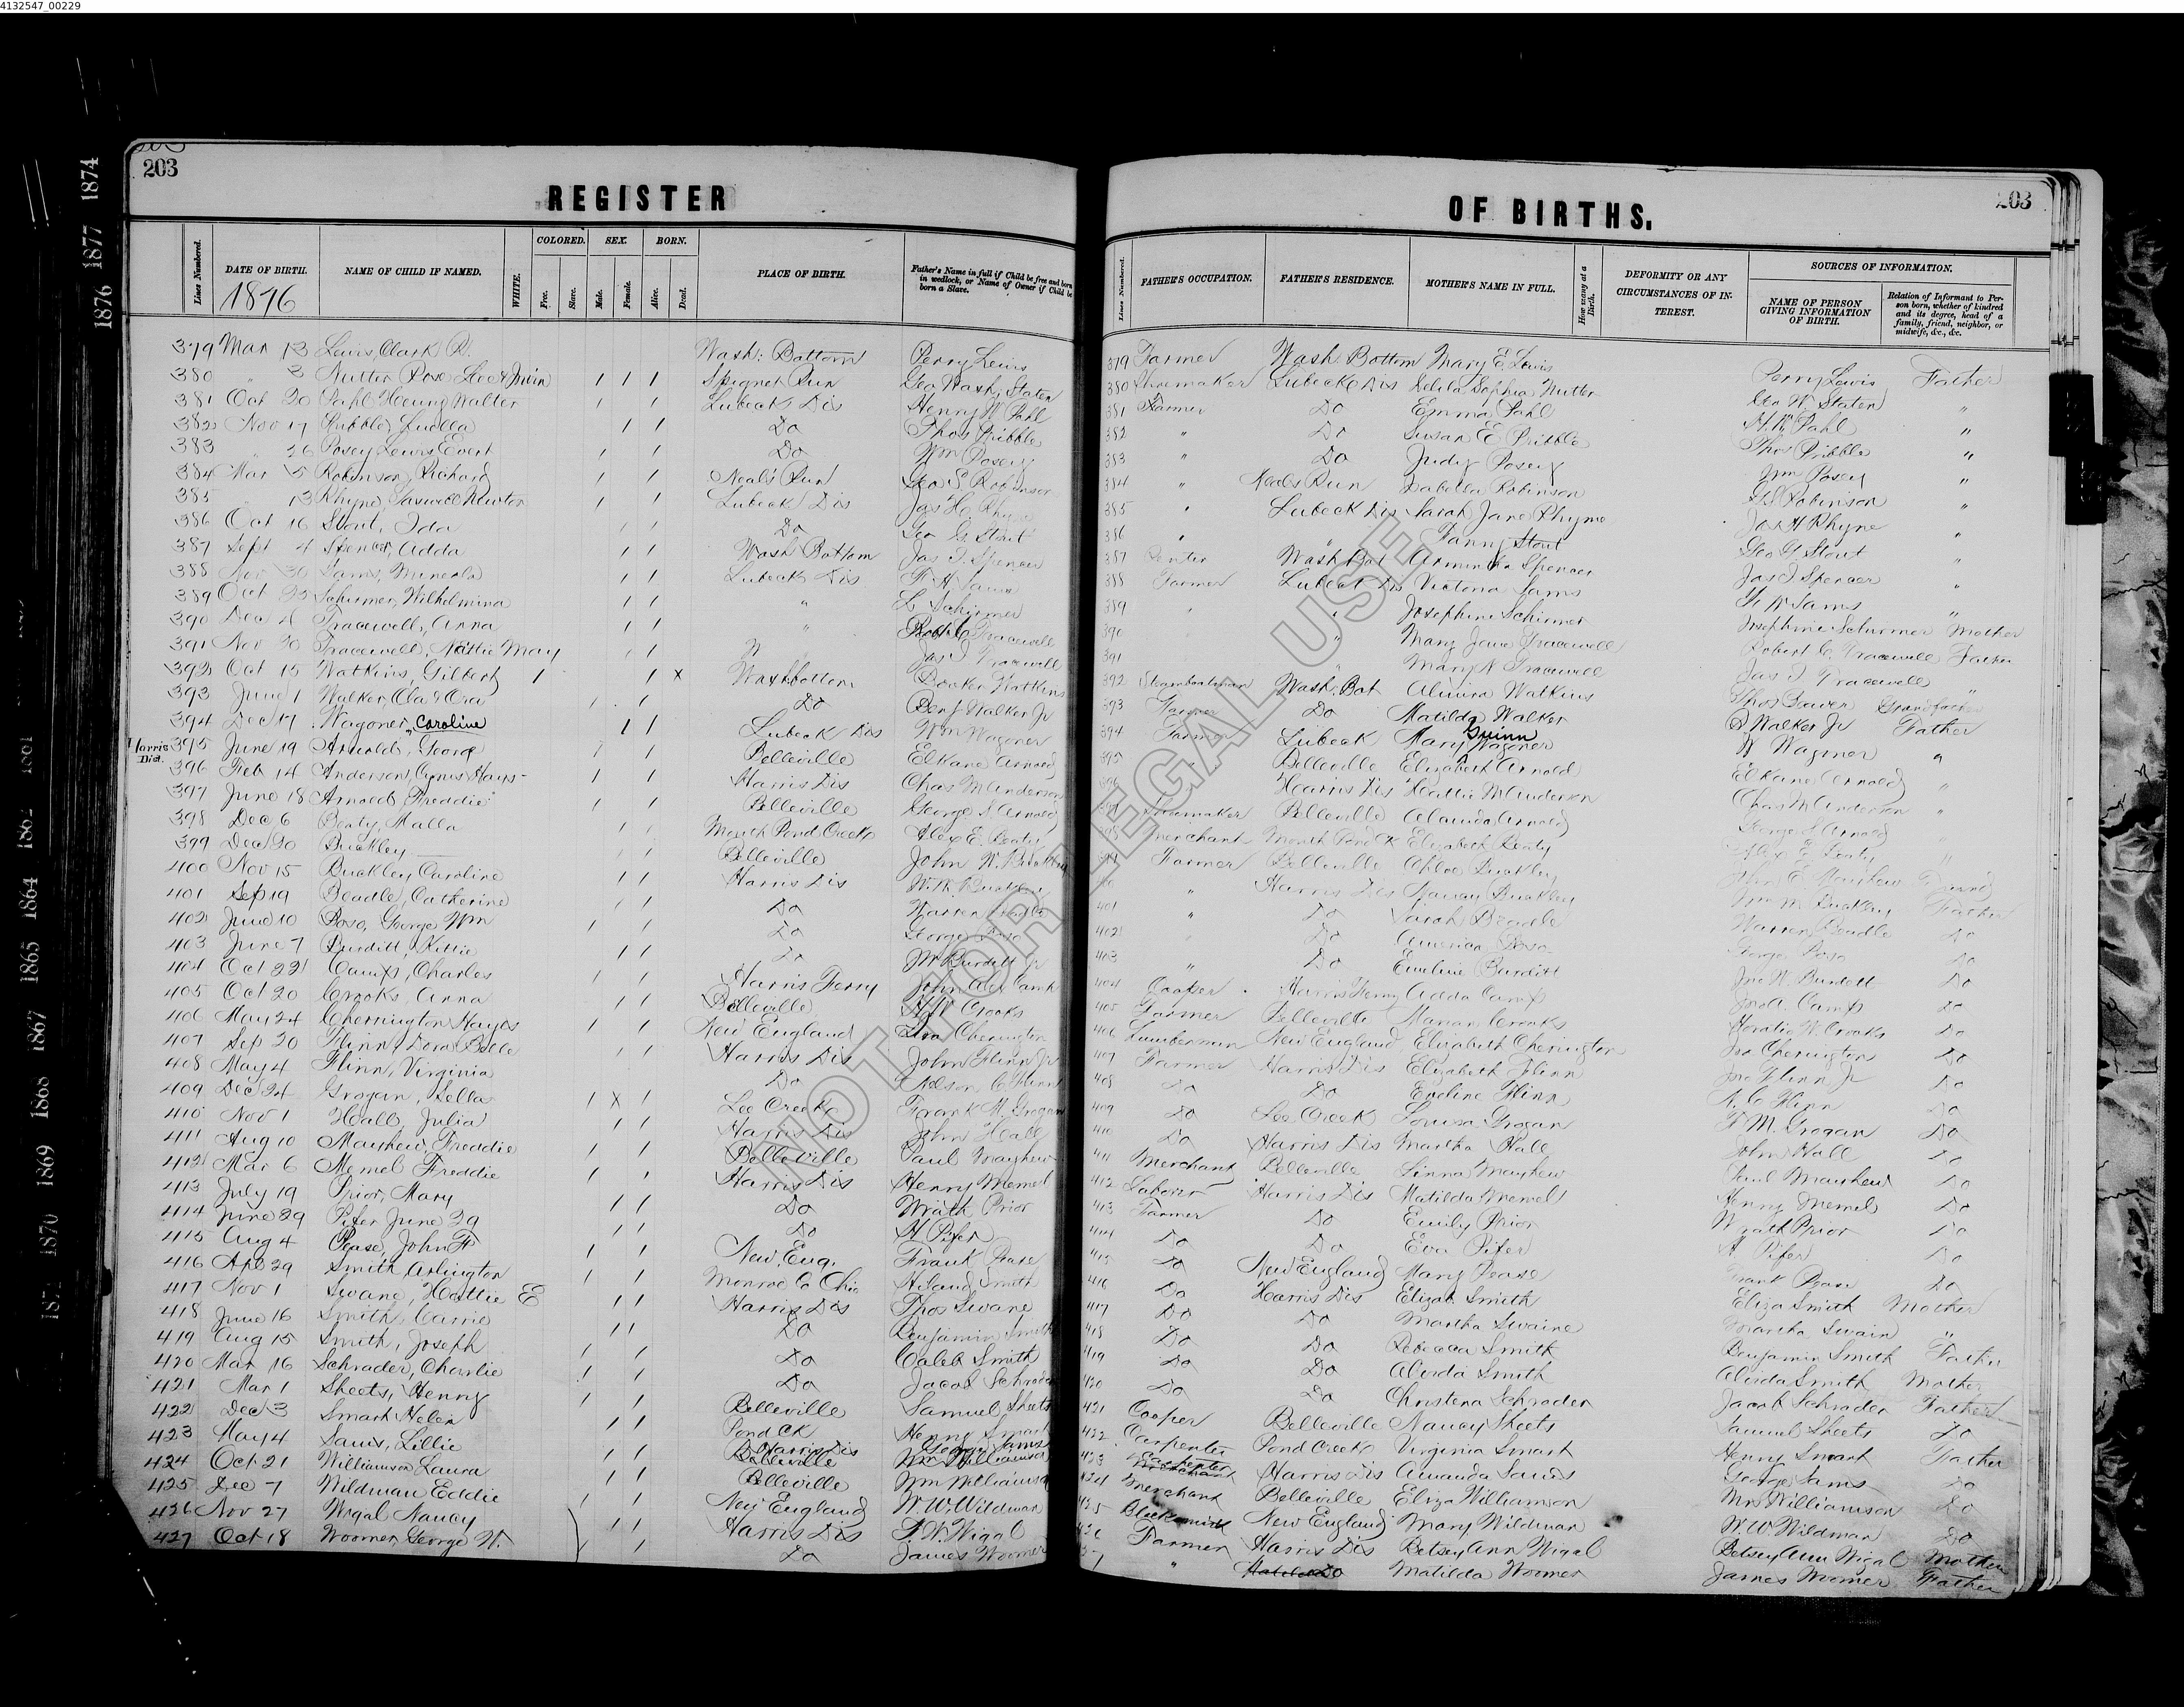 4132547_00229
203
REGISTER
Lines Numbered.
DATE OF BIRTH.
1876
NAME OF CHILD IF NAMED.
WHITE.
COLORED.
Free.
Slave.
SEX.
Male.
Female.
BORN.
Alive.
Dead.
PLACE OF BIRTH.
Father's Name in full if Child be free and born in wedlock, or Name of Owner if Child be born a Slave.
379 Mar 13 Lewis, Clark R. Wash: Bottom Perry Lewis
380 " 3 Nutter Rose Lee & Irvin / / / Spignet Run Geo Wash; Staten
381 Oct 20 Pahl Henry Walter / / Lubeck Dis Henry W Pahl
382 Nov 17 Pribble, Luella / / Do Thos Pribble
383 " 26 Posey Lewis Evert / / Do Wm Posey
384 Mar 5 Robinson, Richard / / Neal's Run Geo S. Robinson
385 " 13 Rhyne, Newton / / Lubeck Dis Jas H. Rhyne
386 Oct 16 Stout, Ida / / Do Geo G. Stout
387 Sept 4 Spencer, Adda / / Wash Bottom Jas I. Spencer
388 Nov 30 Sams, Minerola / / Lubeck Dis Sams
389 Oct 25 Schirmer, Wilhelmina / / " L Schirmer
390 Dec 4 Tracewell, Anna / / " Robt C Tracewell
391 Nov 30 Tracewell, Nattie May / / " Jas I Tracewell
392 Oct 15 Watkins, Gilbert / / x Wash bottom Booker Watkins
393 June 1 Walker, Ola & Ora / / Do Benj Walker Jr
394 Dec 17 Wagoner, Caroline / / Lubeck Dis Wm Wagoner
Harris Dist.
395 June 19 Arnold, George / / Belleville Elkane Arnold
396 Feb 14 Anderson, Cyrus Hays / / Harris Dis Chas M Anderson
397 June 18 Arnold, Freddie / / Belleville George S Arnold
398 Dec 6 Beaty, Malla / / Mouth Pond Creek Alex E. Beaty
399 Dec 30 Buckley / / Belleville John W. Buckley
400 Nov 15 Buckley Caroline / / Harris Dis W. M. Buckley
401 Sep 19 Beadle, Catherine / / Do Warren Beadle
402 June 10 Boso, George Wm / / Do George Boso
403 June 7 Burditt, Kittie / / Do Burdett Jr
404 Oct 22 Camp, Charles / / Harris Ferry John Alex Camp
405 Oct 20 Crooks, Anna / / Belleville H W Crooks
406 May 24 Cherrington Hayes / / New England Ira Cherington
407 Sep 20 Flinn, Dora Belle / / Harris Dis John Flinn Jr
408 May 4 Flinn, Virginia Do Nelson C Flinn
409 Dec 24 Grogan, Lella / X / Lee Creek Frank M. Grogan
410 Nov 1 Hall, Julia / / Harris Dis John Hall
411 Aug 10 Mayhew, Freddie / / Belleville Paul Mayhew
412 Mar 6 Memel Freddie / / Harris Dis Henry Memel
413 July 19 Prior, Mary / / Do Wiath Prior
414 June 29 Pifer June 29 / / Do H Pifer
415 Aug 4 Pease, John F / / New. Eng. Frank Pease
416 Apr 29 Smith, Arlington / / Monroe Co Ohio Hiland Smith
417 Nov 1 Swane, Hattie E / / Harris Dis Thos Swane
418 June 16 Smith, Carrie / / Do Benjamin Smith
419 Aug 15 Smith, Joseph / / Do Caleb Smith
420 Mar 16 Schrader, Charlie / / Do Jacob Schrader
421 Mar 1 Sheets, Henry / / Belleville Samuel Sheets
422 Dec 3 Smart Helen / / Pond Ck Henry Smart
423 May 4 Sams, Lillie / / Harris Dis George Sams
424 Oct 21 Williamson Laura / / Belleville Wm Williamson
425 Dec 7 Wildman Eddie / / New England W. W. Wildman
426 Nov 27 Wigal Nancy / / Harris Dis F. W. Wigal
427 Oct 18 Woomer, George W. / / Do James Woomer
OF BIRTHS.
203
Lines Numbered.
FATHER'S OCCUPATION.
FATHER'S RESIDENCE.
MOTHER'S NAME IN FULL.
How many at a Birth.
DEFORMITY OR ANY CIRCUMSTANCES OF INTEREST.
SOURCES OF INFORMATION.
NAME OF PERSON GIVING INFORMATION OF BIRTH.
Relation of Informant to Person born, whether of kindred and its degree, head of a family, friend, neighbor, or midwife, &c., &c.
379 Farmer Wash Bottom Mary E. Lewis Perry Lewis Father
380 Shoemaker Lubeck Dis Delila Sophia Nutter Geo W. Staten "
381 Farmer Do Emma Pahl H. W. Pahl "
382 " Do Susan E Pribble Thos Pribble "
383 " Do Judy Posey Wm Posey "
384 " Neals Run Isabella Robinson G. S. Robinson "
385 " Lubeck Dis Sarah Jane Rhyme Jas H Rhyne "
386 " " Fanny Stout Geo G Stout "
387 Renter Wash Bot Armintha Spencer Jas I Spencer "
388 Farmer Lubeck Dis Victoria Sams Sams "
389 " " Josephine Schirmer Josephine Schirmer Mother
390 " Mary Jane Tracewell Robert C. Tracewell Father
391 " Mary N Tracewell Jas I Tracewell "
392 Steamboatman Wash. Bot Almira Watkins Thos Grandfather
393 Farmer Do Matilda Walker B. Walker Jr Father
394 Farmer Lubeck Mary Guinn Wagoner W Wagoner "
395 " Belleville Elizabeth Arnold Elkane Arnold "
396 Harris Dis Hattie M Anderson Chas M Anderson "
397 Shoemaker Belleville Alarinda Arnold George S Arnold
398 Merchant Mouth Pond Ck Elizabeth Beaty Alex E Beaty "
399 Farmer Belleville Chloe Buckley John E Mayhew Friend
400 " Harris Dis Nancy Buckley Wm M Buckley Father
401 " Do Sarah Beadle Warren Beadle Do
402 " Do America Boso George Boso Do
403 " Do Emeline Burditt Jno W. Burdett Do
404 Cooper Harris Ferry Adda Camp Jno A. Camp Do
405 Farmer Belleville Marian Crooks Horatio W. Crooks Do
406 Lumberman New England Elizabeth Cherington Ira Cherington Do
407 Farmer Harris Dis Elizabeth Flinn Jno Flinn Jr Do
408 Do Do Eveline Flinn N. C Flinn Do
409 Do Lee Creek Louisa Grogan F M. Grogan Do
410 Do Harris Dis Martha Hall John Hall Do
411 Merchant Belleville Linna Mayhew Paul Mayhew Do
412 Laborer Harris Dis Matilda Memel Henry Memel Do
413 Farmer Do Emily Prior Wyath Prior Do
414 Do Do Eva Pifer H Pifer Do
415 Do New England Mary Pease Frank Pease Do
416 Do Harris Dis Elizab Smith Eliza Smith Mother
417 Do Do Martha Swaine Martha Swain "
418 Do Do Rebecca Smith Benjamin Smith Father
419 Do Do Alvida Smith Alvida Smith Mother
420 Do Do Christena Schrader Jacob Schrader Father
421 Cooper Belleville Nancy Sheets Samuel Sheets Do
422 Carpenter Pond Creek Virginia Smart Henry Smart Father
423 Carpenter Harris Dis Amanda Sams George Sams Do
424 Merchant Belleville Eliza Williamson Wm Williamson Do
425 Blacksmith New England Mary Wildman W. W. Wildman Do
426 Farmer Harris Dis Betsey Ann Wigal Betsey Ann Wigal Mother
" Do Matilda Woomer James Woomer Father
NOT FOR LEGAL USE
1876 1877 1874
1864
1865
1867
1868
1869
1870